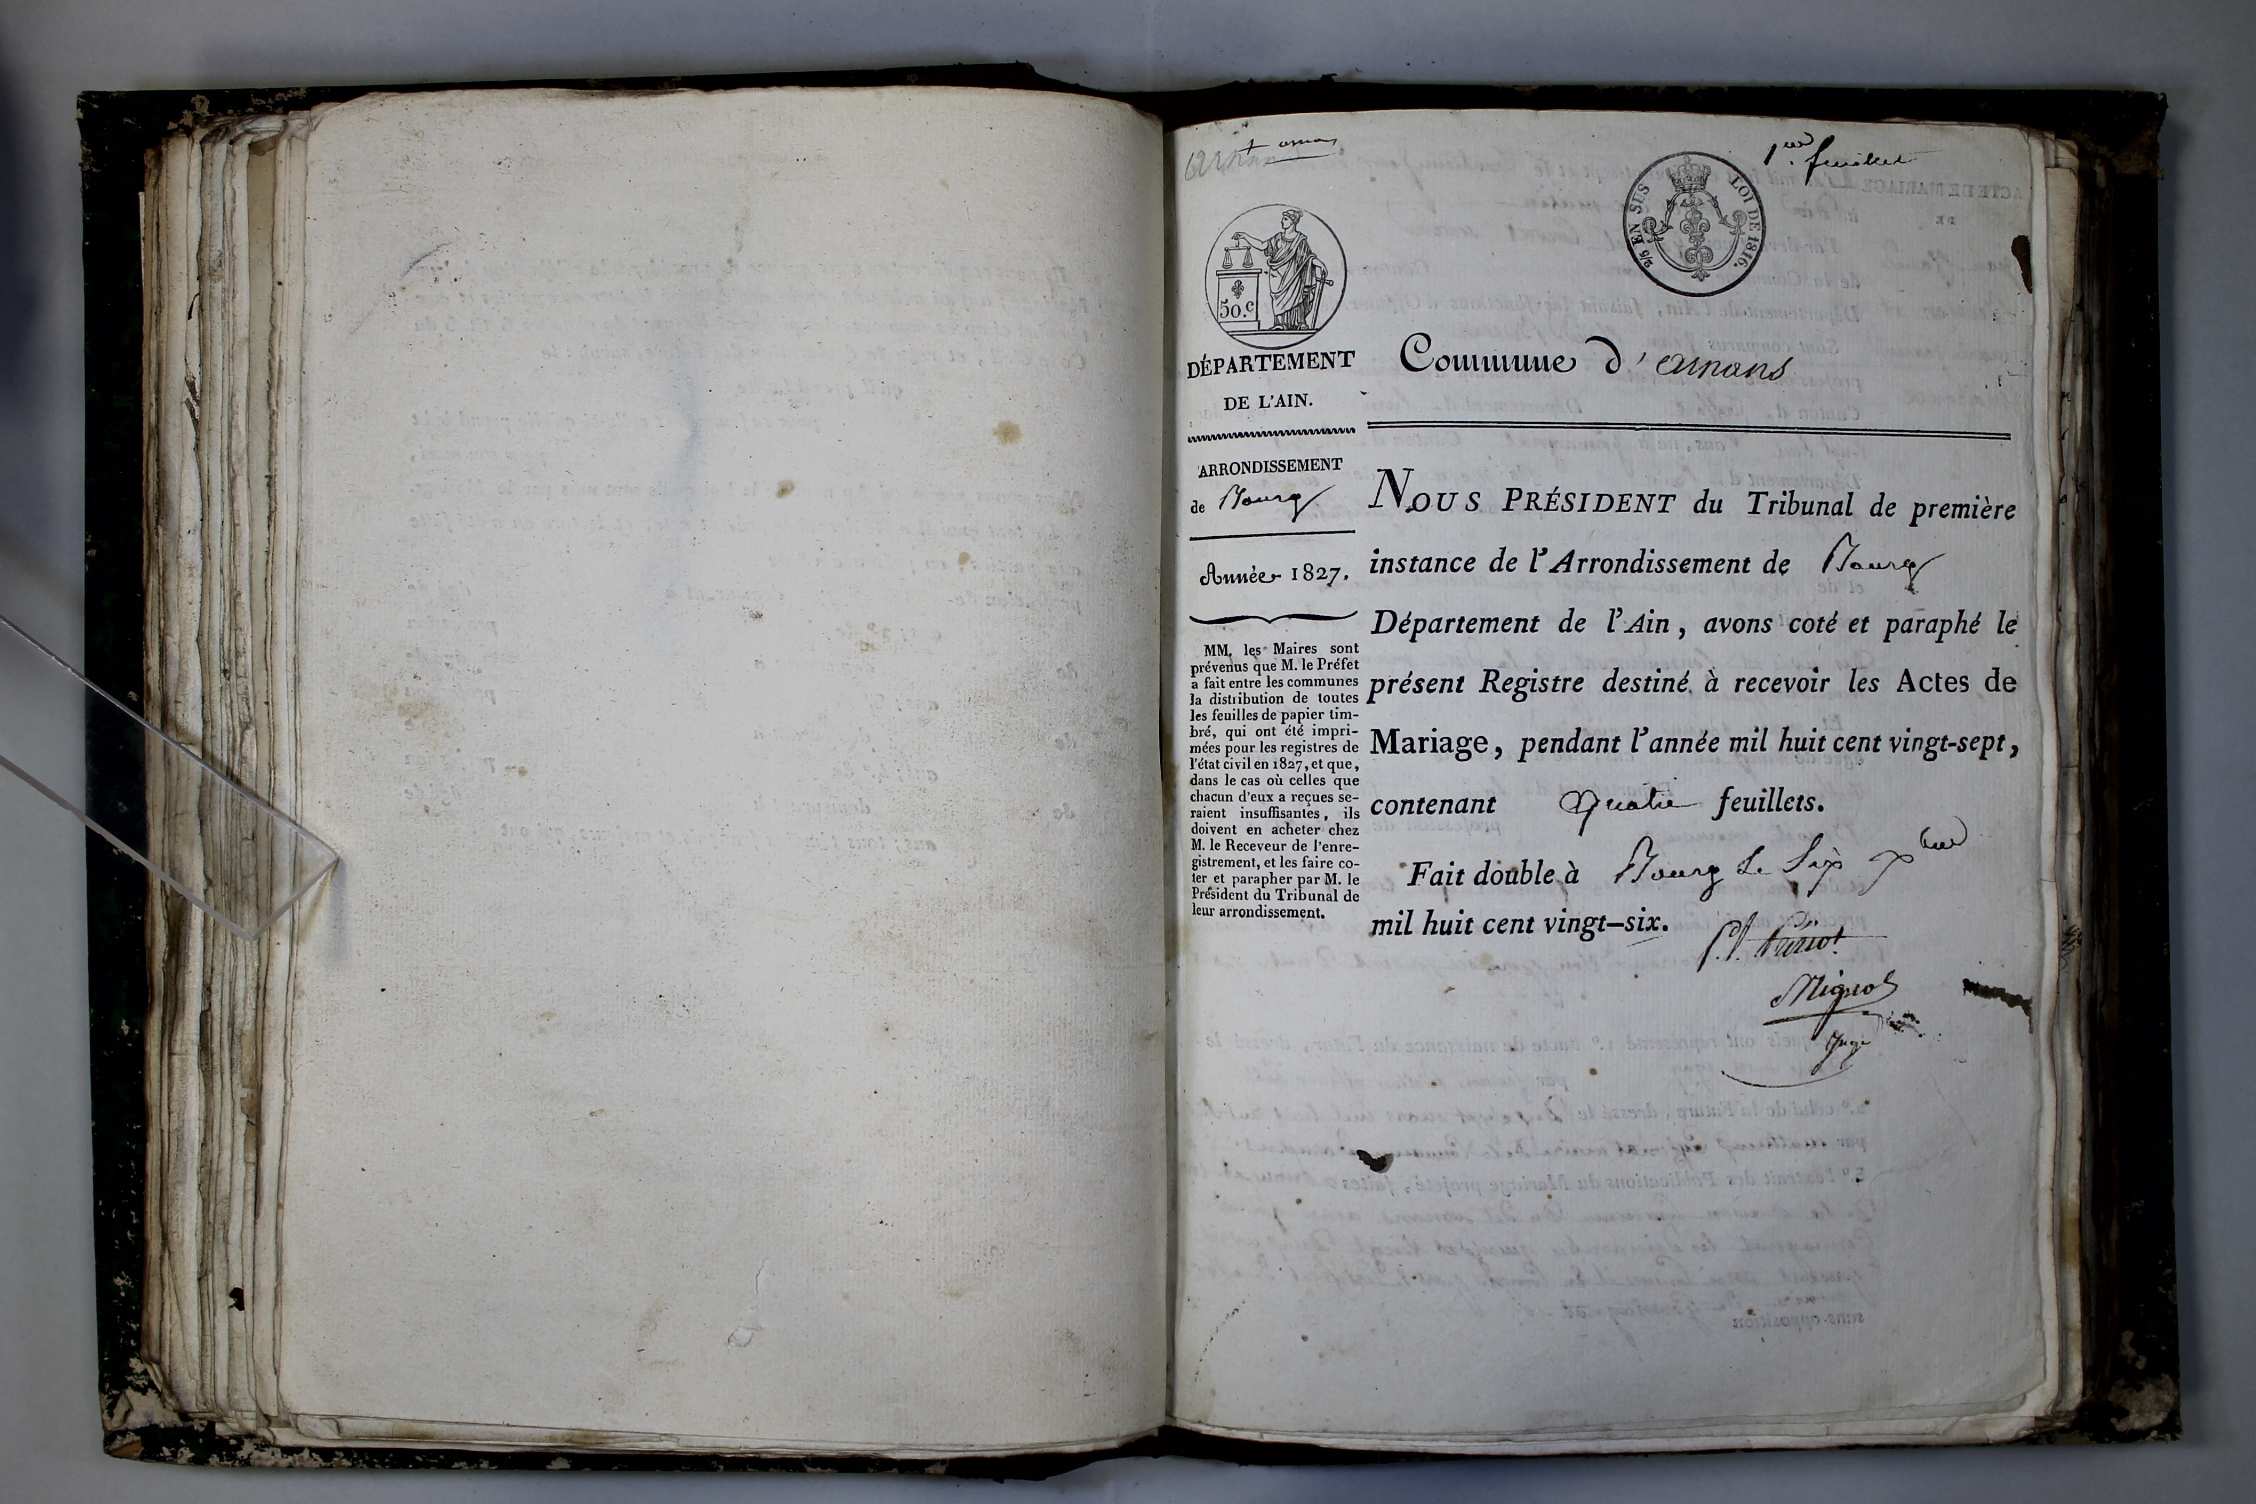 1er feuillet
2/5 EN SUS LOI DE 1816.
50.c
DÉPARTEMENT
DE L'AIN.
ARRONDISSEMENT
de Bourg
Année 1827.
MM. les Maires sont
prévenus que M. le Préfet
a fait entre les communes
la distribution de toutes
les feuilles de papier tim-
bré, qui ont été impri-
mées pour les registres de
l'état civil en 1827, et que,
dans le cas où celles que
chacun d'eux a reçues se-
raient insuffisantes, ils
doivent en acheter chez
M. le Receveur de l'enre-
gistrement, et les faire co-
ter et parapher par M. le
Président du Tribunal de
leur arrondissement.
Commune d'arnans
NOUS PRÉSIDENT du Tribunal de première
instance de l'Arrondissement de Bourg
Département de l'Ain, avons coté et paraphé le
présent Registre destiné à recevoir les Actes de
Mariage, pendant l'année mil huit cent vingt-sept,
contenant quatre feuillets.
Fait double à Bourg le six
mil huit cent vingt-six.
Juge